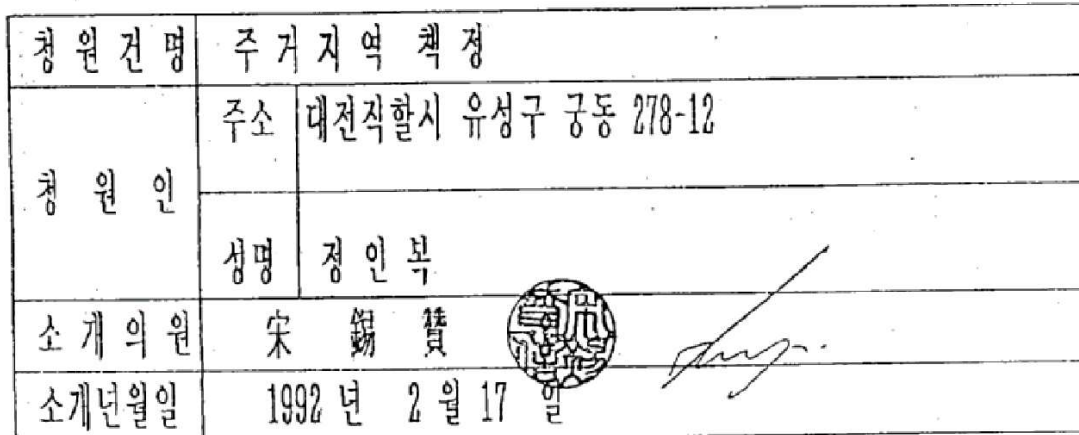 청원건명 주거지역 책정
청원인 주소 대전직할시 유성구 궁동 278-12
성명 정인복
소개의원 宋錫贊
소개년월일 1992년 2월 17일